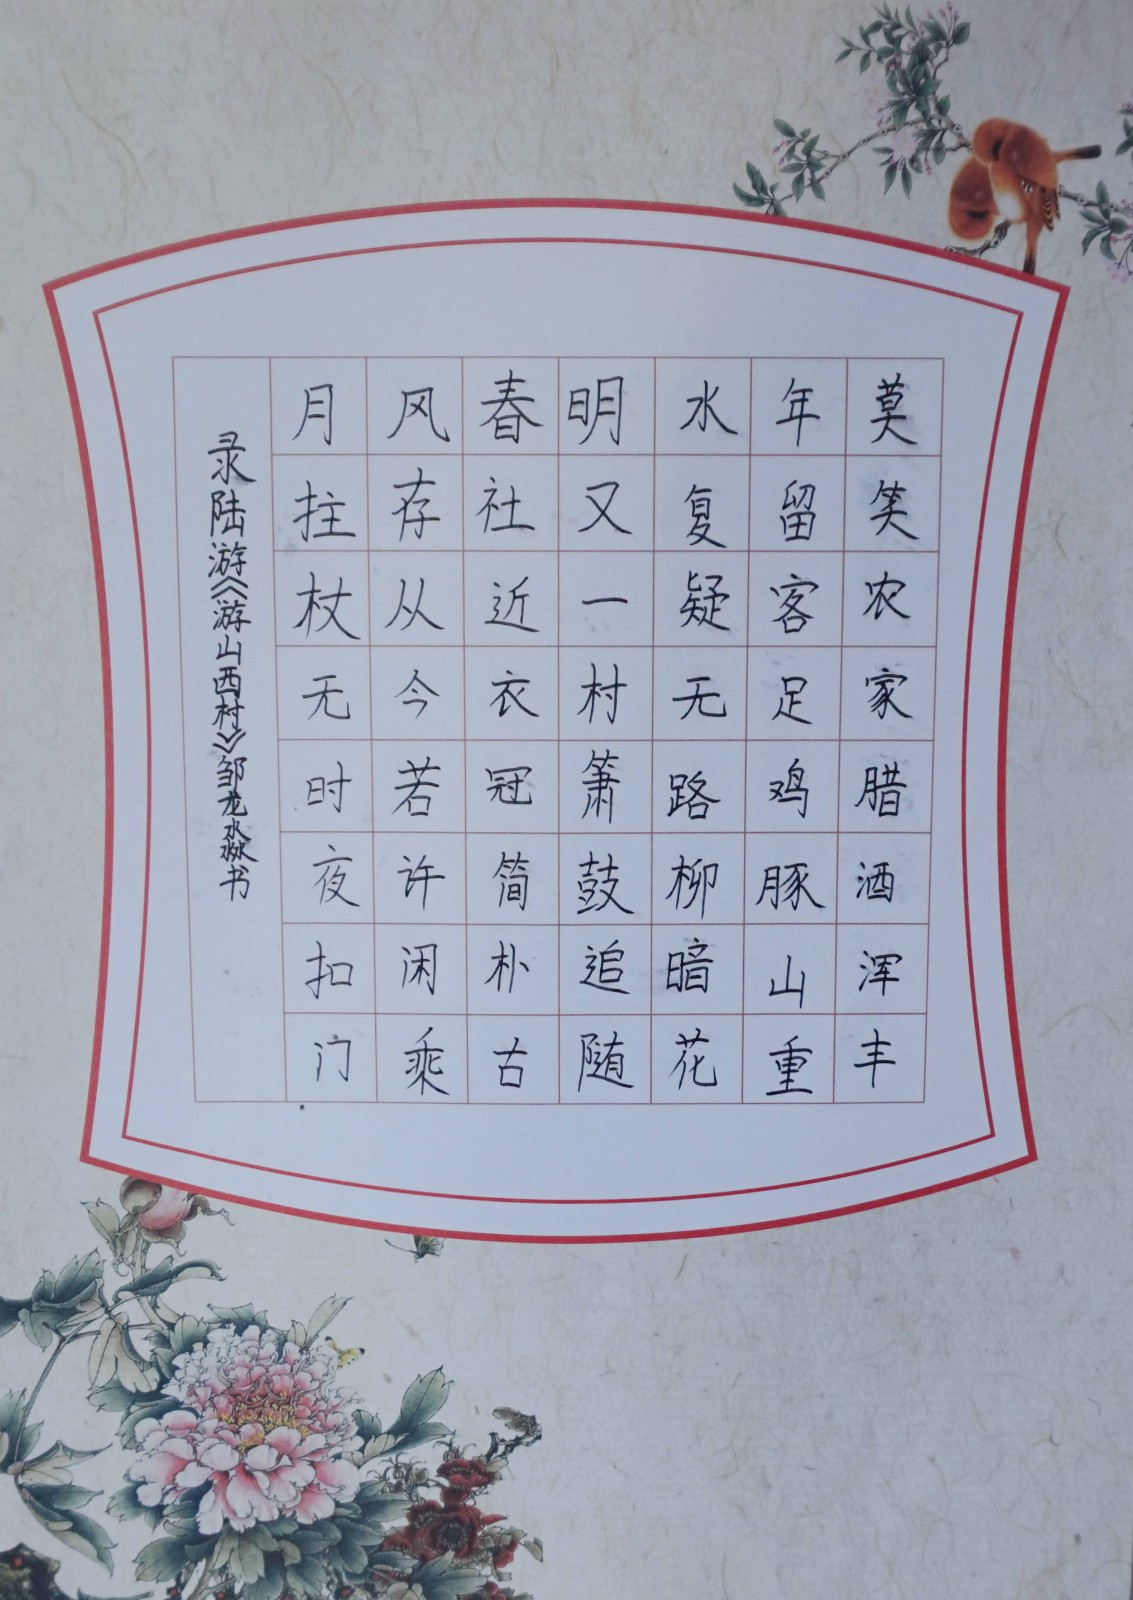 莫笑农家腊酒浑丰
年留客足鸡豚山重
水复疑无路柳暗花
明又一村箫鼓追随
春社近衣冠简朴古
风存从今若许闲乘
月拄杖无时夜扣门
录陆游《游山西村》邹龙淼书